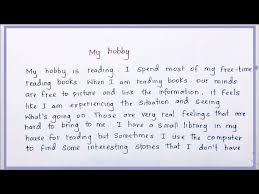 My hobby
My hobby is reading. I spend most of my free-time
reading books. When I am reading books our minds
are free to picture and link the information, it feels
like I am experiencing the situation and seeing
what's going on. Those are very real feelings that are
hard to bring to me. I have a small library in my
house for reading but sometimes I use the computer
to find some interesting stories that I don't have